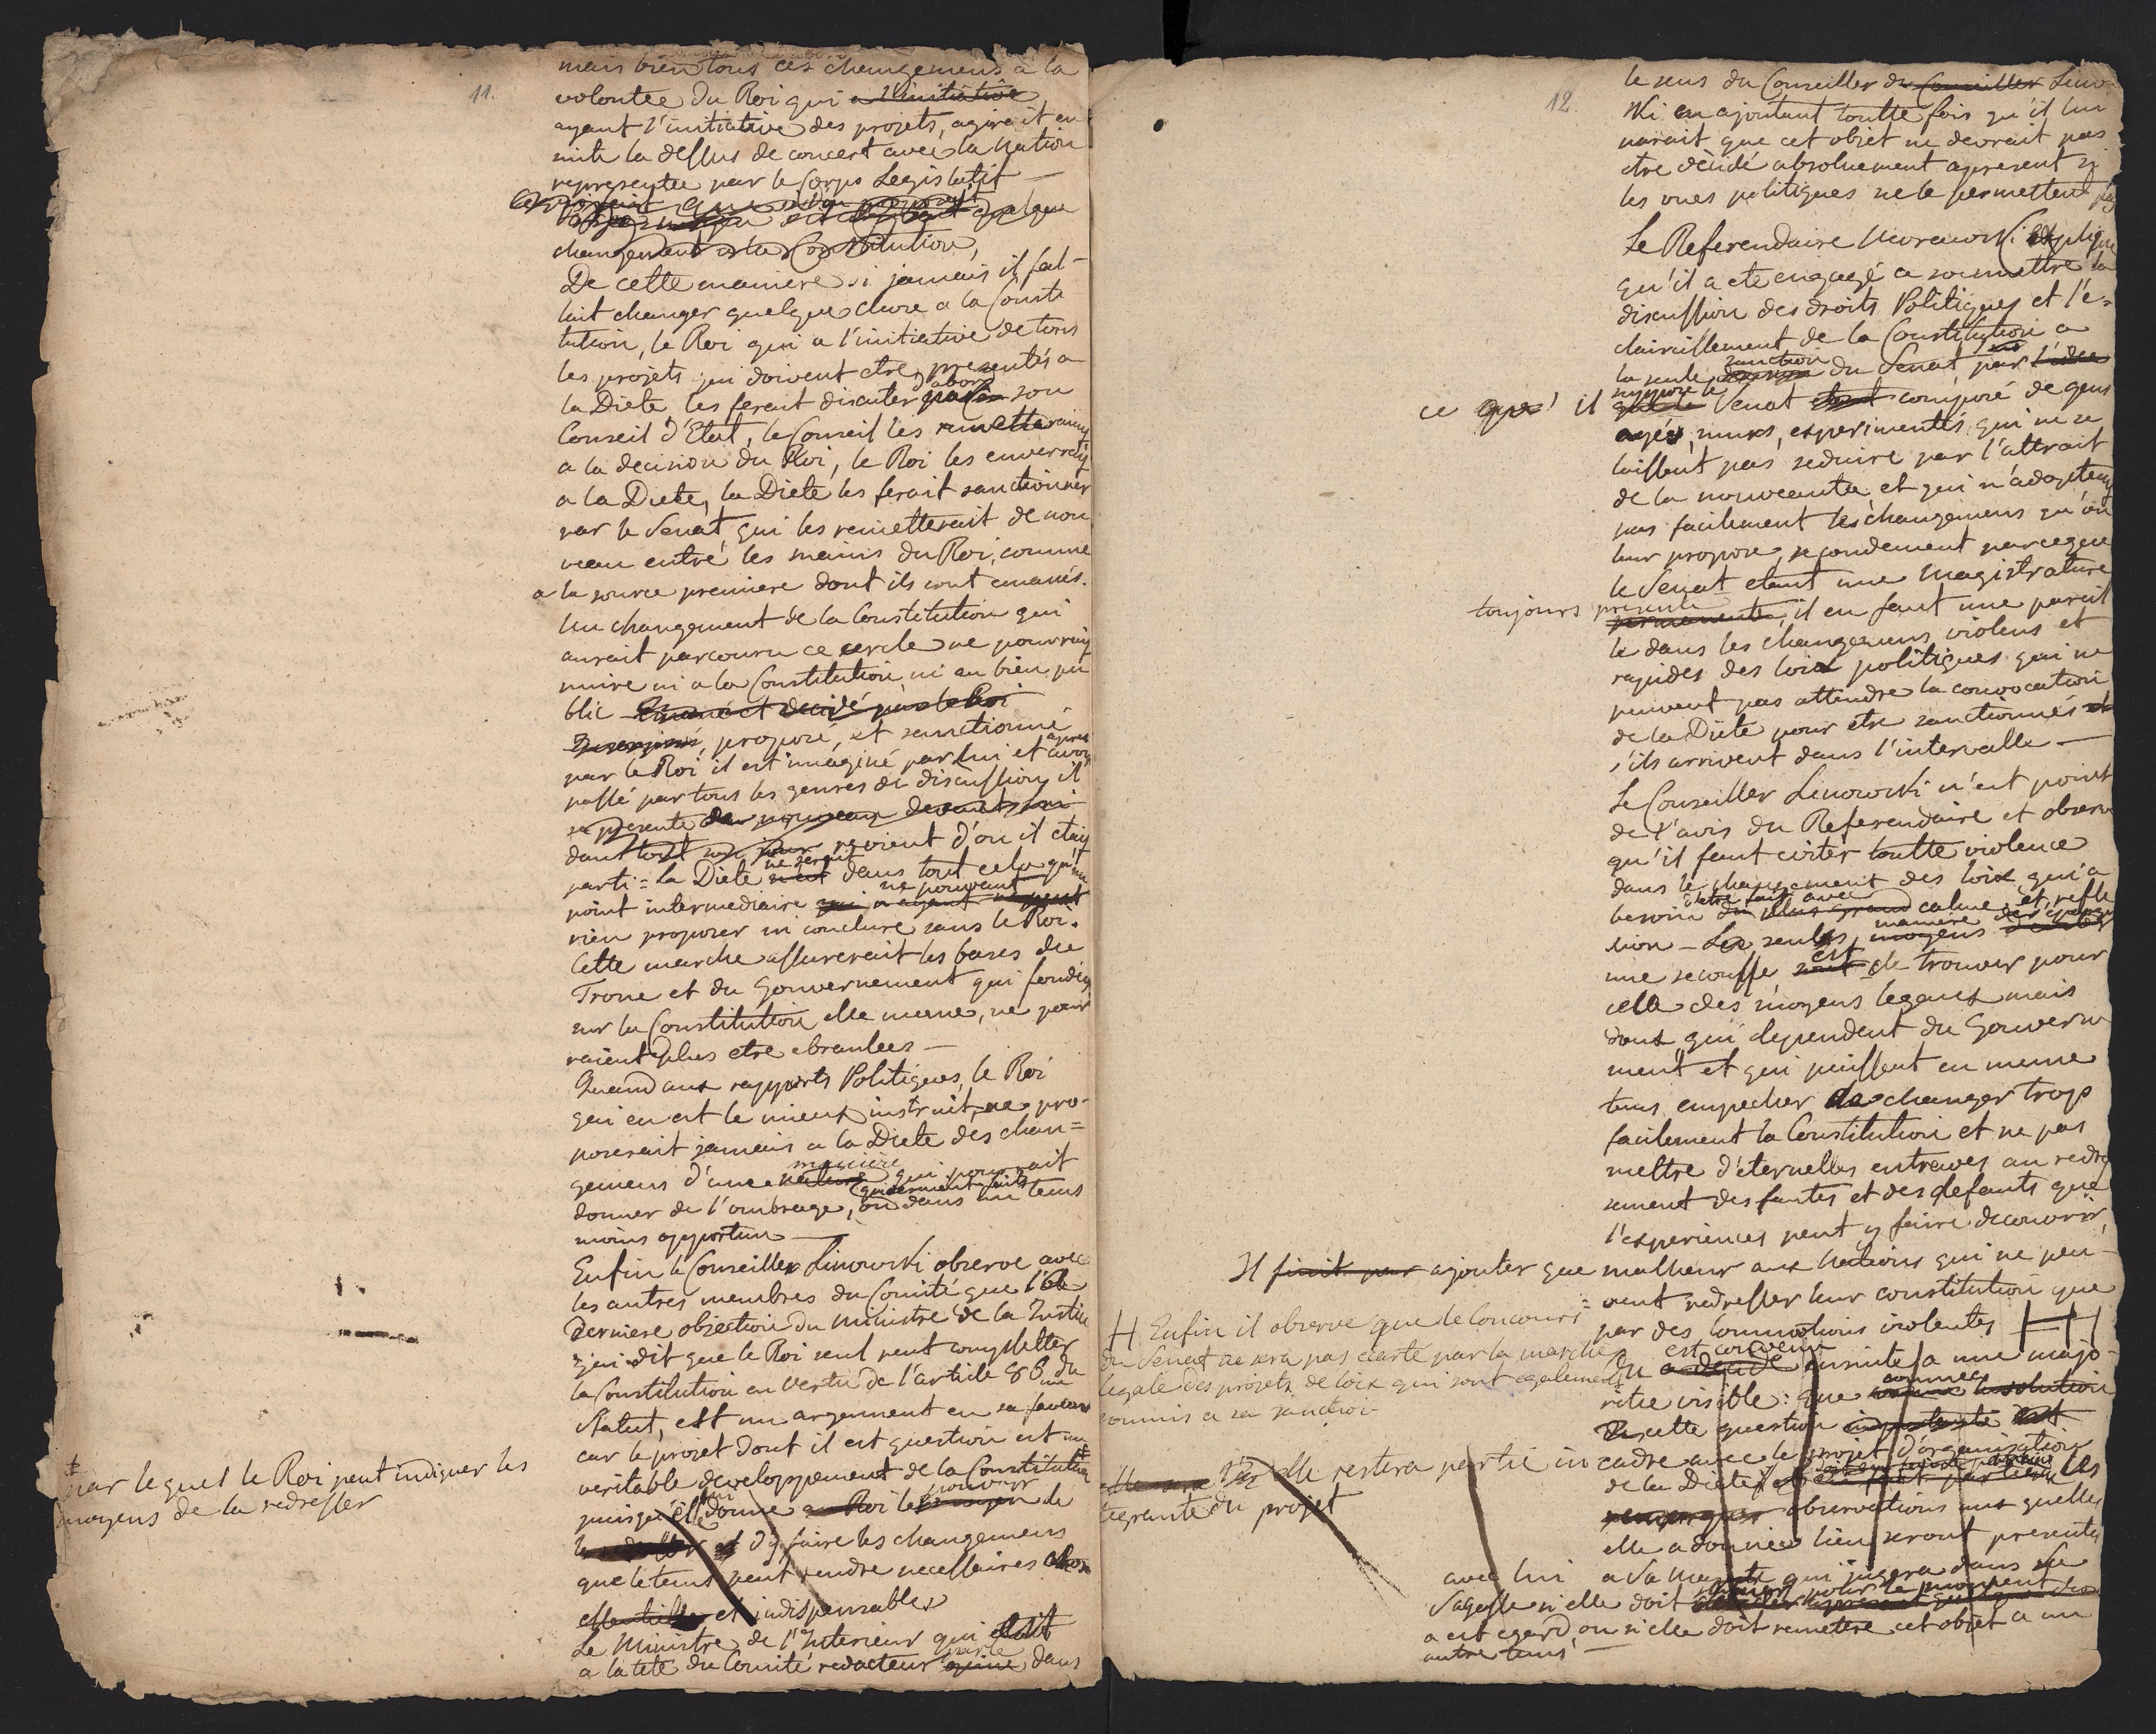 11.
mais bien tous ces changemens a la
volontee du Roi qui a l'initiative
ayant l'initiative des projets, agirait en
suite la dessus de concert avec la Nation
representee par le Corps Legislatif —
quelque
changement a la Constitution,
De cette maniere si jamais il fal-
lait changer quelque chose a la Consti
tution, le Roi qui a l'initiative de tous
les projets qui doivent etre presentés a
la Diete les ferait discuter d'abord par son
Conseil d'Etat, le Conseil les remetterait
a la decision du Roi, le Roi les enverrait
a la Diete, la Diete les ferait sanctionner
par le Senat, qui les remetterait de nou
veau entre les mains du Roi, comme
a la source premiere dont ils sont emanés.
Un changement de la Constitution qui
aurait parcouru ce cercle ne pourrait
nuire ni a la Constitution ni au bien pu
blic Emané et decidé par le Roi
proposé, et sanctionné
par le Roi il est imaginé par lui et apres avoir
passé par tous les genres de discussion, il
se presente de nouveau devant lui
dans tout son jour revient d'ou il etait
parti = La Diete n'est ne serait dans tout cela qu'un
point intermediaire qui n'ayant ne pouvant ne peut
rien proposer ni conclure sans le Roi.
Cette marche assurerait les bases du
Trone et du Gouvernement qui fondées
sur la Constitution elle meme, ne pour
raient plus etre ebranlees —
Quand aux rapports Politiques, le Roi
qui en est le mieux instruit, ne pro-
poserait jamais a la Diete des chan=
gemens d'une nature maniere qui pourrait
donner de l'ombrage, ou dans un tems
moins opportun —
Enfin le Conseiller Linowski observe avec
les autres membres du Comité que l'
derniere objection du Ministre de la Justice
qui dit que le Roi seul peut completter
la Constitution en Vertu de l'article 86 du
Statut, est un argument en sa faveur
car le projet dont il est question est un
veritable developpement de la Constitution
puisqu'elle lui donne au Roi le pouvoir moyen de
la redresser et d'y faire les changemens
que le tems peut rendre necessaires
essentielles et indispensables
Le Ministre de l'Interieur qui etait
a la tete du Comité redacteur parle dans
‡ par lequel le Roi peut indiquer les
moyens de la redresser
12.
le sens du Conseiller du Conseiller Linow
ski en ajoutant toutte fois qu'il lui
parait que cet objet ne devrait pas
etre decidé absolument apresent si
les vues politiques ne le permettent pas
Le Referendaire Morawski explique
qu'il a ete engagé a soumettre la
discussion des droits Politiques et l'e=
claircissement de la Constitution a
la seule sanction du Senat par l'idee
ce que il suppose le que le Senat etant composé de gens
agés, murs, experimentés qui ne se
laissent pas seduire par l'attrait
de la nouveautee et qui n'adoptent
pas facilement les changemens qu'on
leur propose, secondement parceque
le Senat etant une Magistrature
toujours presente permanente, il en faut une pareil
le dans les changemens violens et
rapides des loix politiques qui ne
peuvent pas attendre la convocation
de la Diete pour etre sanctionnés et
s'ils arrivent dans l'intervalle —
Le Conseiller Linowski n'est point
de l'avis du Referendaire et observe
qu'il faut eviter toutte violence
dans le changement des loix qui a
besoin d'etre fait avec du plus grand calme et refle
xion — La seule maniere moyens d'eviter
une secousse est sont de trouver pour
celle des moyens legaux mais
doux qui dependent du Gouverne
ment et qui puissent en meme
tems empecher de changer trop
facilement la Constitution et ne pas
mettre d'eternelles entraves au redre
ssement des fautes et des defauts que
l'experience peut y faire decouvrir,
Il finit par ajouter que malheur aux Nations qui ne peu-
vent redresser leur constitution que
par des commotions violentes
H Enfin il observe que le concours
du Senat ne sera pas ecarté par la marche
legale des projets de loix qui sont egalement
soumis a sa sanction
On a decidé est convenu ensuite a une majo-
rité visible: que comme la solution
de cette question importante est
cadre avec le projet d'organisation
de la Diete
elle sera elle restera partie in
tegrante du projet
les
remarques observations aux quelles
elle a donnée lieu seront presentés
avec lui a Sa Majesté qui jugera dans sa
Sagesse si elle doit pour le moment
a cet egard, ou si elle doit remettre cet objet a un
autre tems —